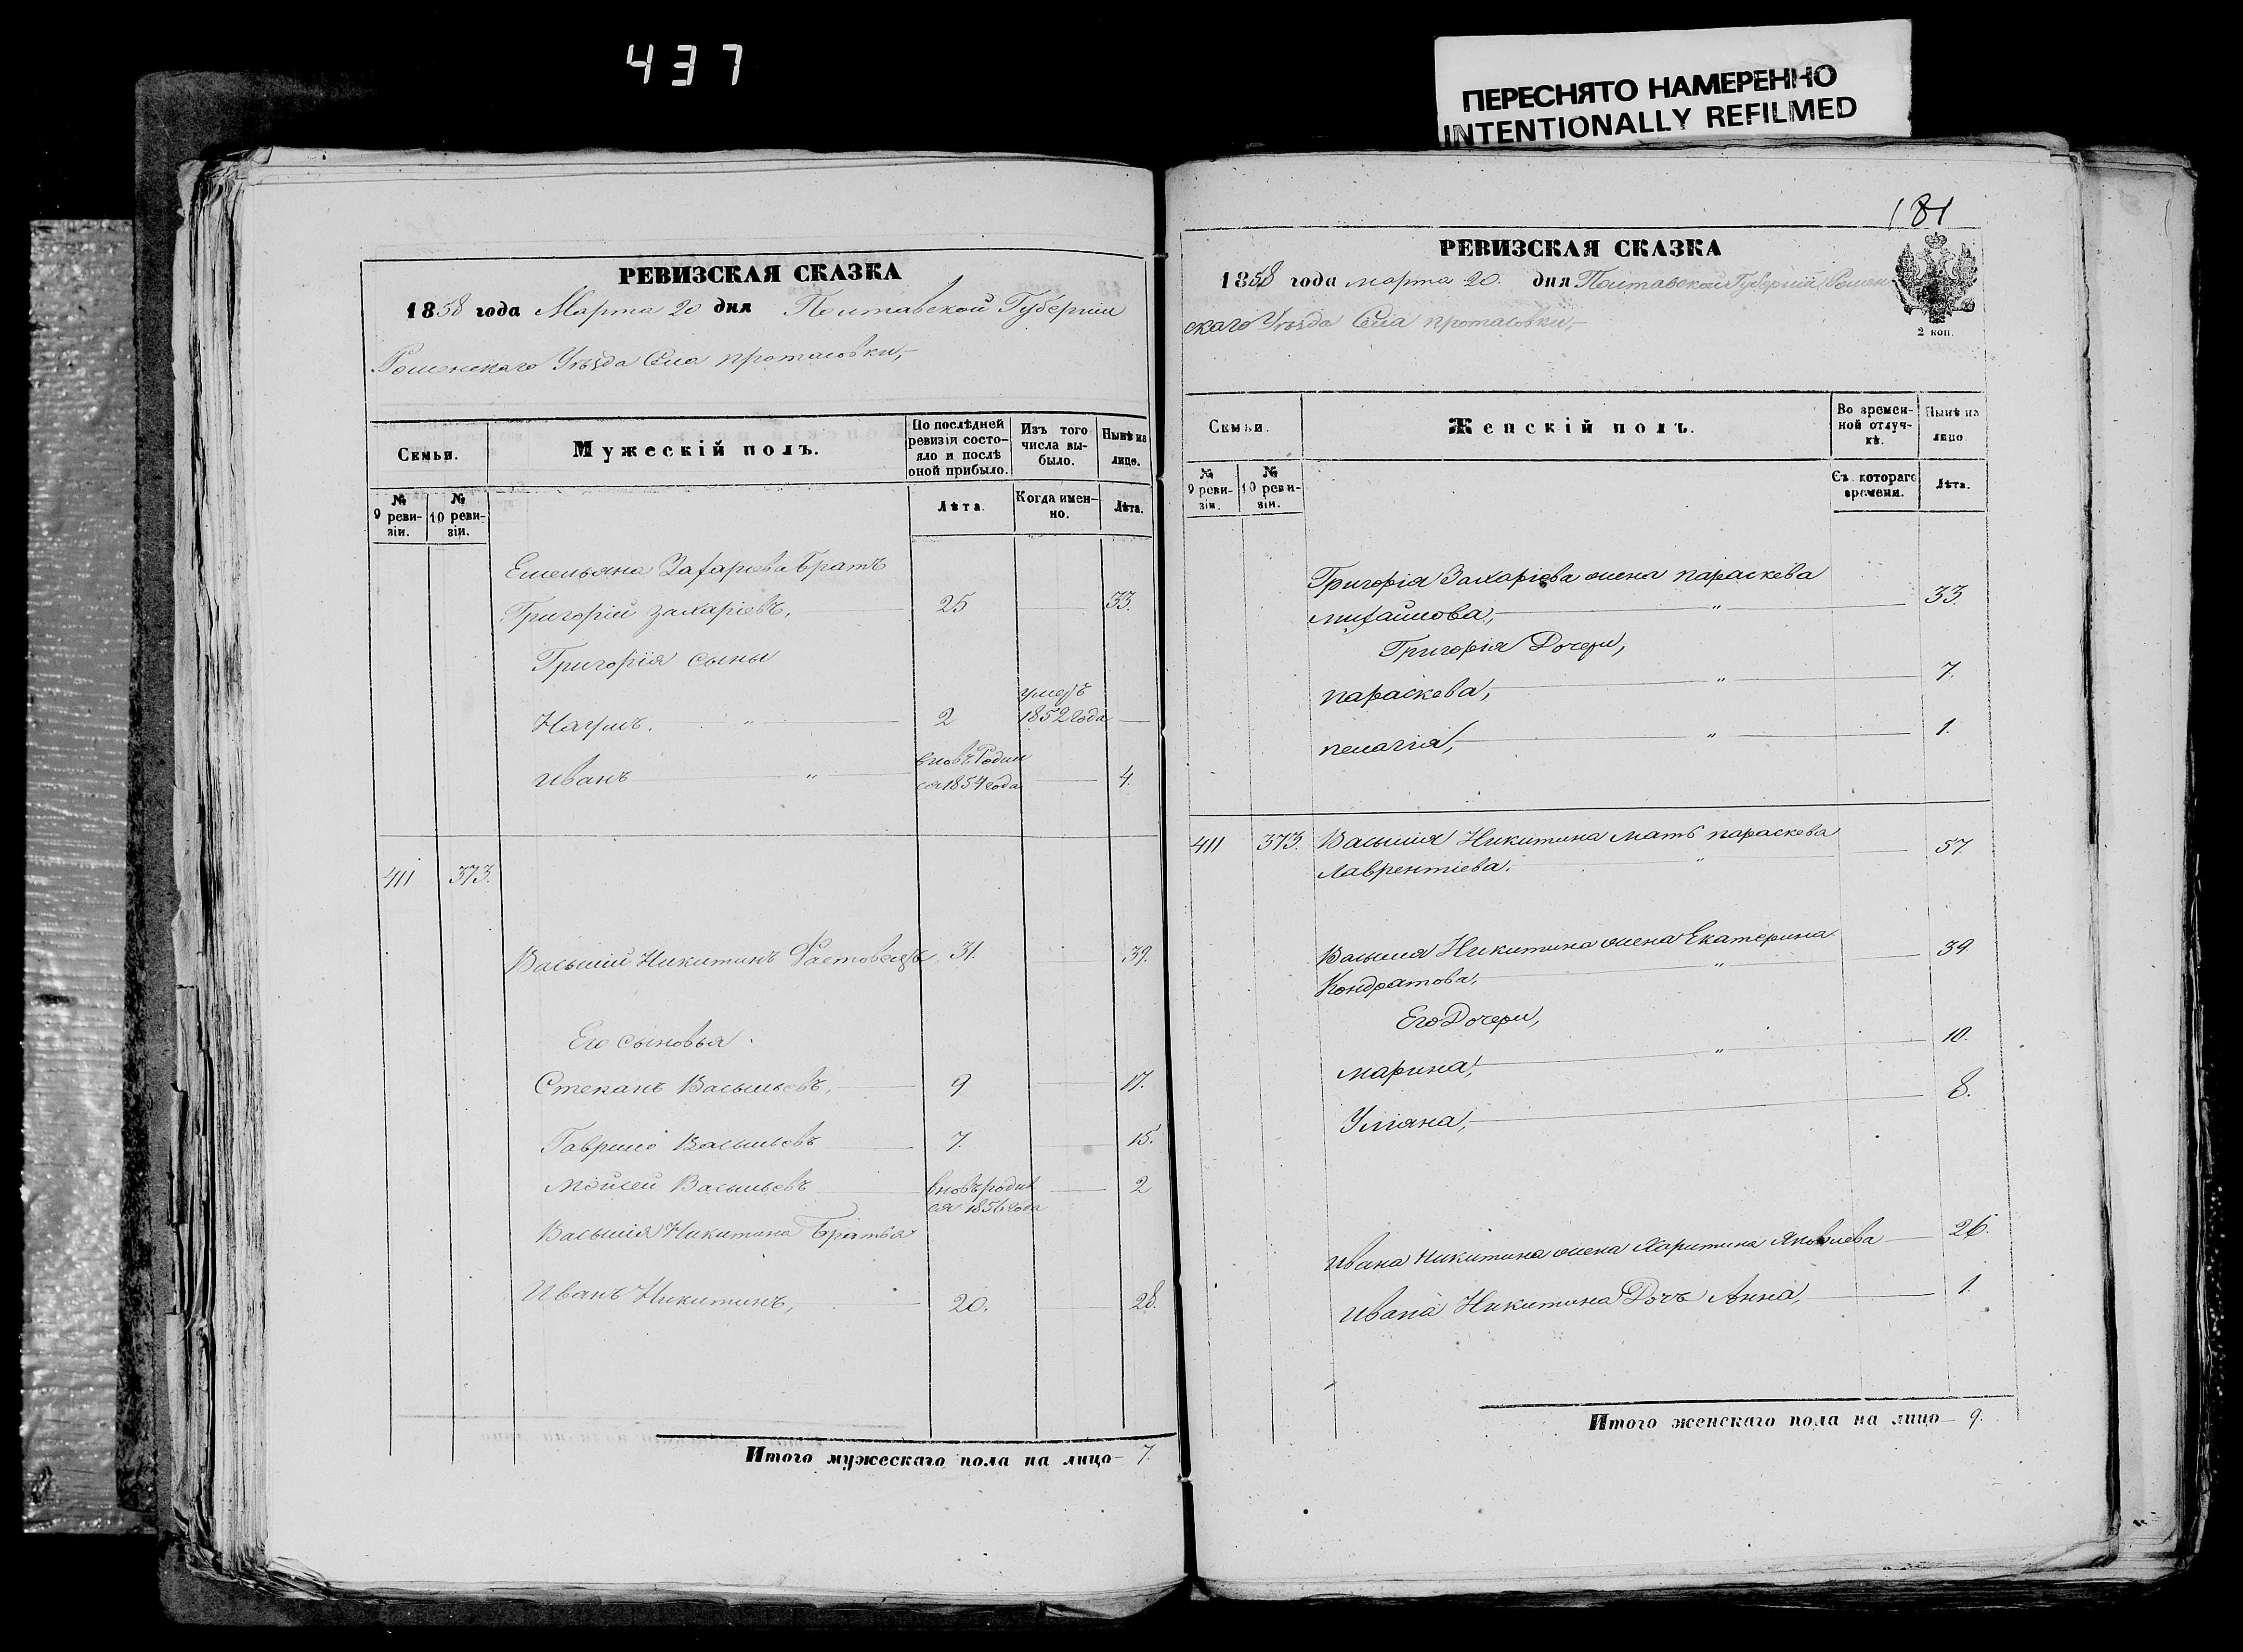 437
ПЕРЕСНЯТО НАМЕРЕННО
INTENTIONALLY REFILMED
РЕВИЗСКАЯ СКАЗКА
1858 года Марта 20 дня Полтавской Губерніи
Роменскаго Уѣзда Села протасовки,
Семьи.
Мужескій полъ.
По послѣдней ревизіи состояло и послѣ оной прибыло.
Изъ того числа выбыло.
Нынѣ на лице.
№ 9 ревизіи.
№ 10 ревизіи.
Лѣта.
Когда именно.
Лѣта.
Емельяна Захарьева Братъ
Григорій захаріевъ, 25 33.
Григорія сыны
Наумъ. " 2 умеръ 1852 года
иванъ " вновь родился 1854 года 4.
411 373.
Василій Никитинъ 31. 39.
Его сыновья.
Степанъ Васильевъ, 9 17.
Гаврило Васильевъ 7. 15.
Мойсей Васильевъ вновь родился 1856 года 2
Василія Никитина братья
Иванъ Никитинъ, 20. 28.
Итого мужескаго пола на лицо 7.
181
РЕВИЗСКАЯ СКАЗКА
1858 года марта 20. дня Полтавской Губерніи Ромен-
скаго Уѣзда Села протасовки,
2 коп.
Семьи.
Женскій полъ.
Во временной отлучкѣ.
Нынѣ на лицо
№ 9 ревизіи.
№ 10 ревизіи.
Съ котораго времени.
Лѣта.
Григорія Захаріева жена параскева
михайлова, " 33.
Григорія Дочери,
параскева, " 7.
пелагія, " 1.
411 373. Василія Никитина мать параскева 57.
лаврентіева. "
Василия Никитина жена Екатерина 39
Кондратова, "
Его Дочери,
марина, " 10.
Уліяна, 8.
ивана никитина жена Харитина Яковлева 26.
ивана Никитина Дочь Анна, 1.
Итого женскаго пола на лицо 9.